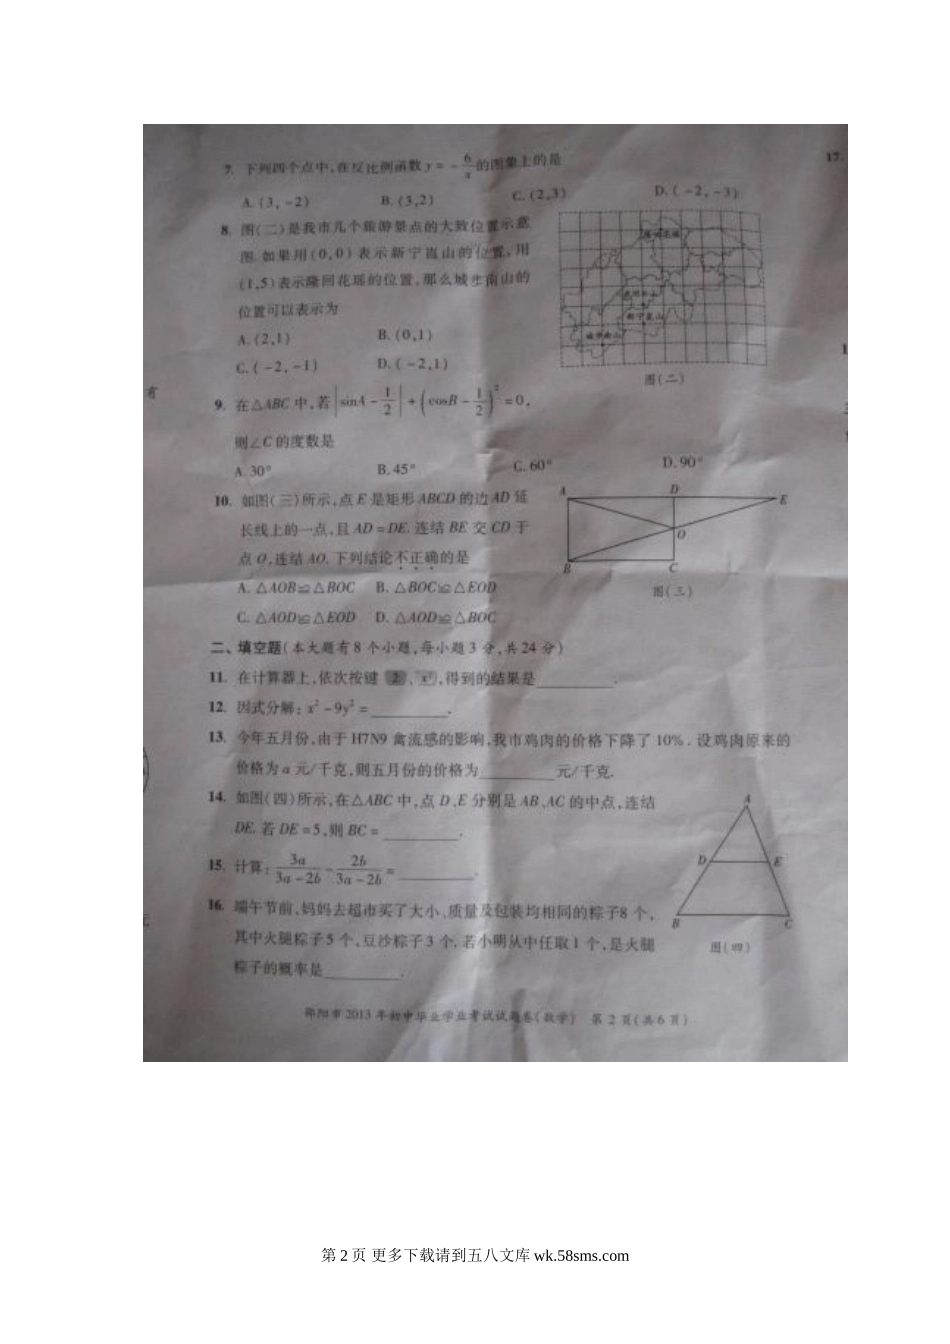 7. 下列四个点中,在反比例函数 y = - 6/x 的图象上的是
A. (3, -2) B. (3,2) C. (2,3) D. ( -2, -3)
8. 图(二)是我市几个旅游景点的大致位置示意
图.如果用(0,0)表示新宁崀山的位置,用
(1,5)表示隆回花瑶的位置,那么城步南山的
位置可以表示为
A. (2,1) B. (0,1)
C. ( -2, -1) D. ( -2,1)
图(二)
9. 在△ABC 中,若 |sinA - 1/2| + (cosB - 1/2)² = 0,
则∠C 的度数是
A. 30° B. 45° C. 60° D. 90°
10. 如图(三)所示,点 E 是矩形 ABCD 的边 AD 延
长线上的一点,且 AD = DE. 连结 BE 交 CD 于
点 O,连结 AO. 下列结论不正确的是
A. △AOB≌△BOC B. △BOC≌△EOD
C. △AOD≌△EOD D. △AOD≌△BOC
A D E
O
B C
图(三)
二、填空题(本大题有 8 个小题,每小题 3 分,共 24 分)
11. 在计算器上,依次按键 2 、 x² ,得到的结果是________.
12. 因式分解: x² - 9y² = ________.
13. 今年五月份,由于 H7N9 禽流感的影响,我市鸡肉的价格下降了 10% . 设鸡肉原来的
价格为 a 元/千克,则五月份的价格为________元/千克.
14. 如图(四)所示,在△ABC 中,点 D、E 分别是 AB、AC 的中点,连结
DE. 若 DE = 5,则 BC = ________.
15. 计算: 3a/(3a - 2b) - 2b/(3a - 2b) = ________.
16. 端午节前,妈妈去超市买了大小、质量及包装均相同的粽子8 个,
其中火腿粽子 5 个,豆沙粽子 3 个. 若小明从中任取 1 个,是火腿
粽子的概率是________.
A
D E
B C
图(四)
邵阳市 2013 年初中毕业学业考试试题卷(数学) 第 2 页(共 6 页)
17.
有
第 2 页 更多下载请到五八文库 wk.58sms.com